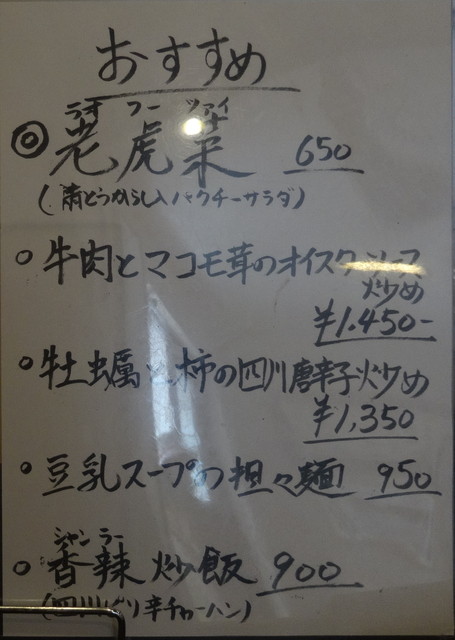 おすすめ
ラオ フー ツァイ
◎ 老虎菜 650
(青とうがらし入パクチーサラダ)
○ 牛肉とマコモ茸のオイスターソース
炒め
¥1.450-
○ 牡蠣と柿の四川唐辛子炒め
¥1,350
○ 豆乳スープの担々麺 950
シャン ラー
○ 香辣炒飯 900
(四川ピリ辛チャーハン)